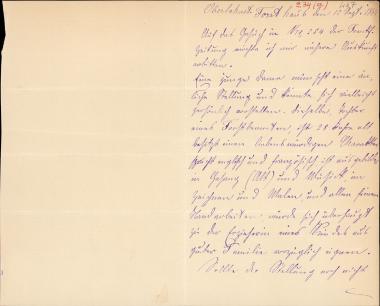 Oberlahnst. Forsthaus den 12 Sept. 18
234 (9)
Auf das Gesuch in Nro 224 der Frankf.
Zeitung möchte ich um nähere Auskunft
bitten.
Eine junge Dame wünscht eine
Stellung und könnte sich vielleicht
persönlich vorstellen. Dieselbe, Tochter
eines Forstbeamten, ist 28 Jahre alt
besitzt einen liebenswürdigen Charakter
spricht englisch und französisch ist ausgebildet
in Gesang (Alt) und Musik im
Zeichnen und Malen und allen feinen
Handarbeiten würde sich überhaupt
zu der Erzieherin eines Kindes aus
guter Familie vorzüglich eignen.
Sollte die Stellung noch nicht